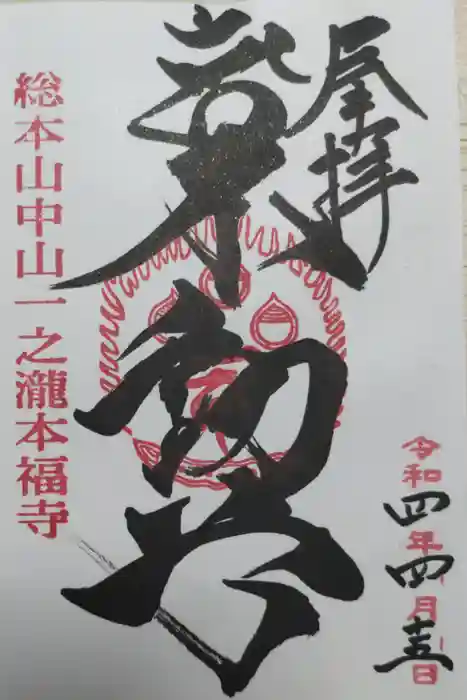 拝
令和四年四月十五日
不動尊
総本山中山一之瀧本福寺